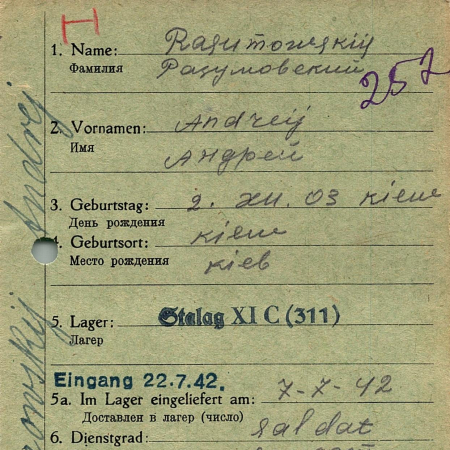 1. Name: Rasumowskij
Фамилия Разумовский
257
2. Vornamen: Andreij
Имя Андрей
3. Geburtstag: 2. XII. 03 Kiew
День рождения
4. Geburtsort: Kiew
Место рождения Киев
5. Lager: Stalag XI C (311)
Лагер
Eingang 22.7.42.
5a. Im Lager eingeliefert am: 7-7-42
Доставлен в лагер (число)
6. Dienstgrad: Saldat
Andrej